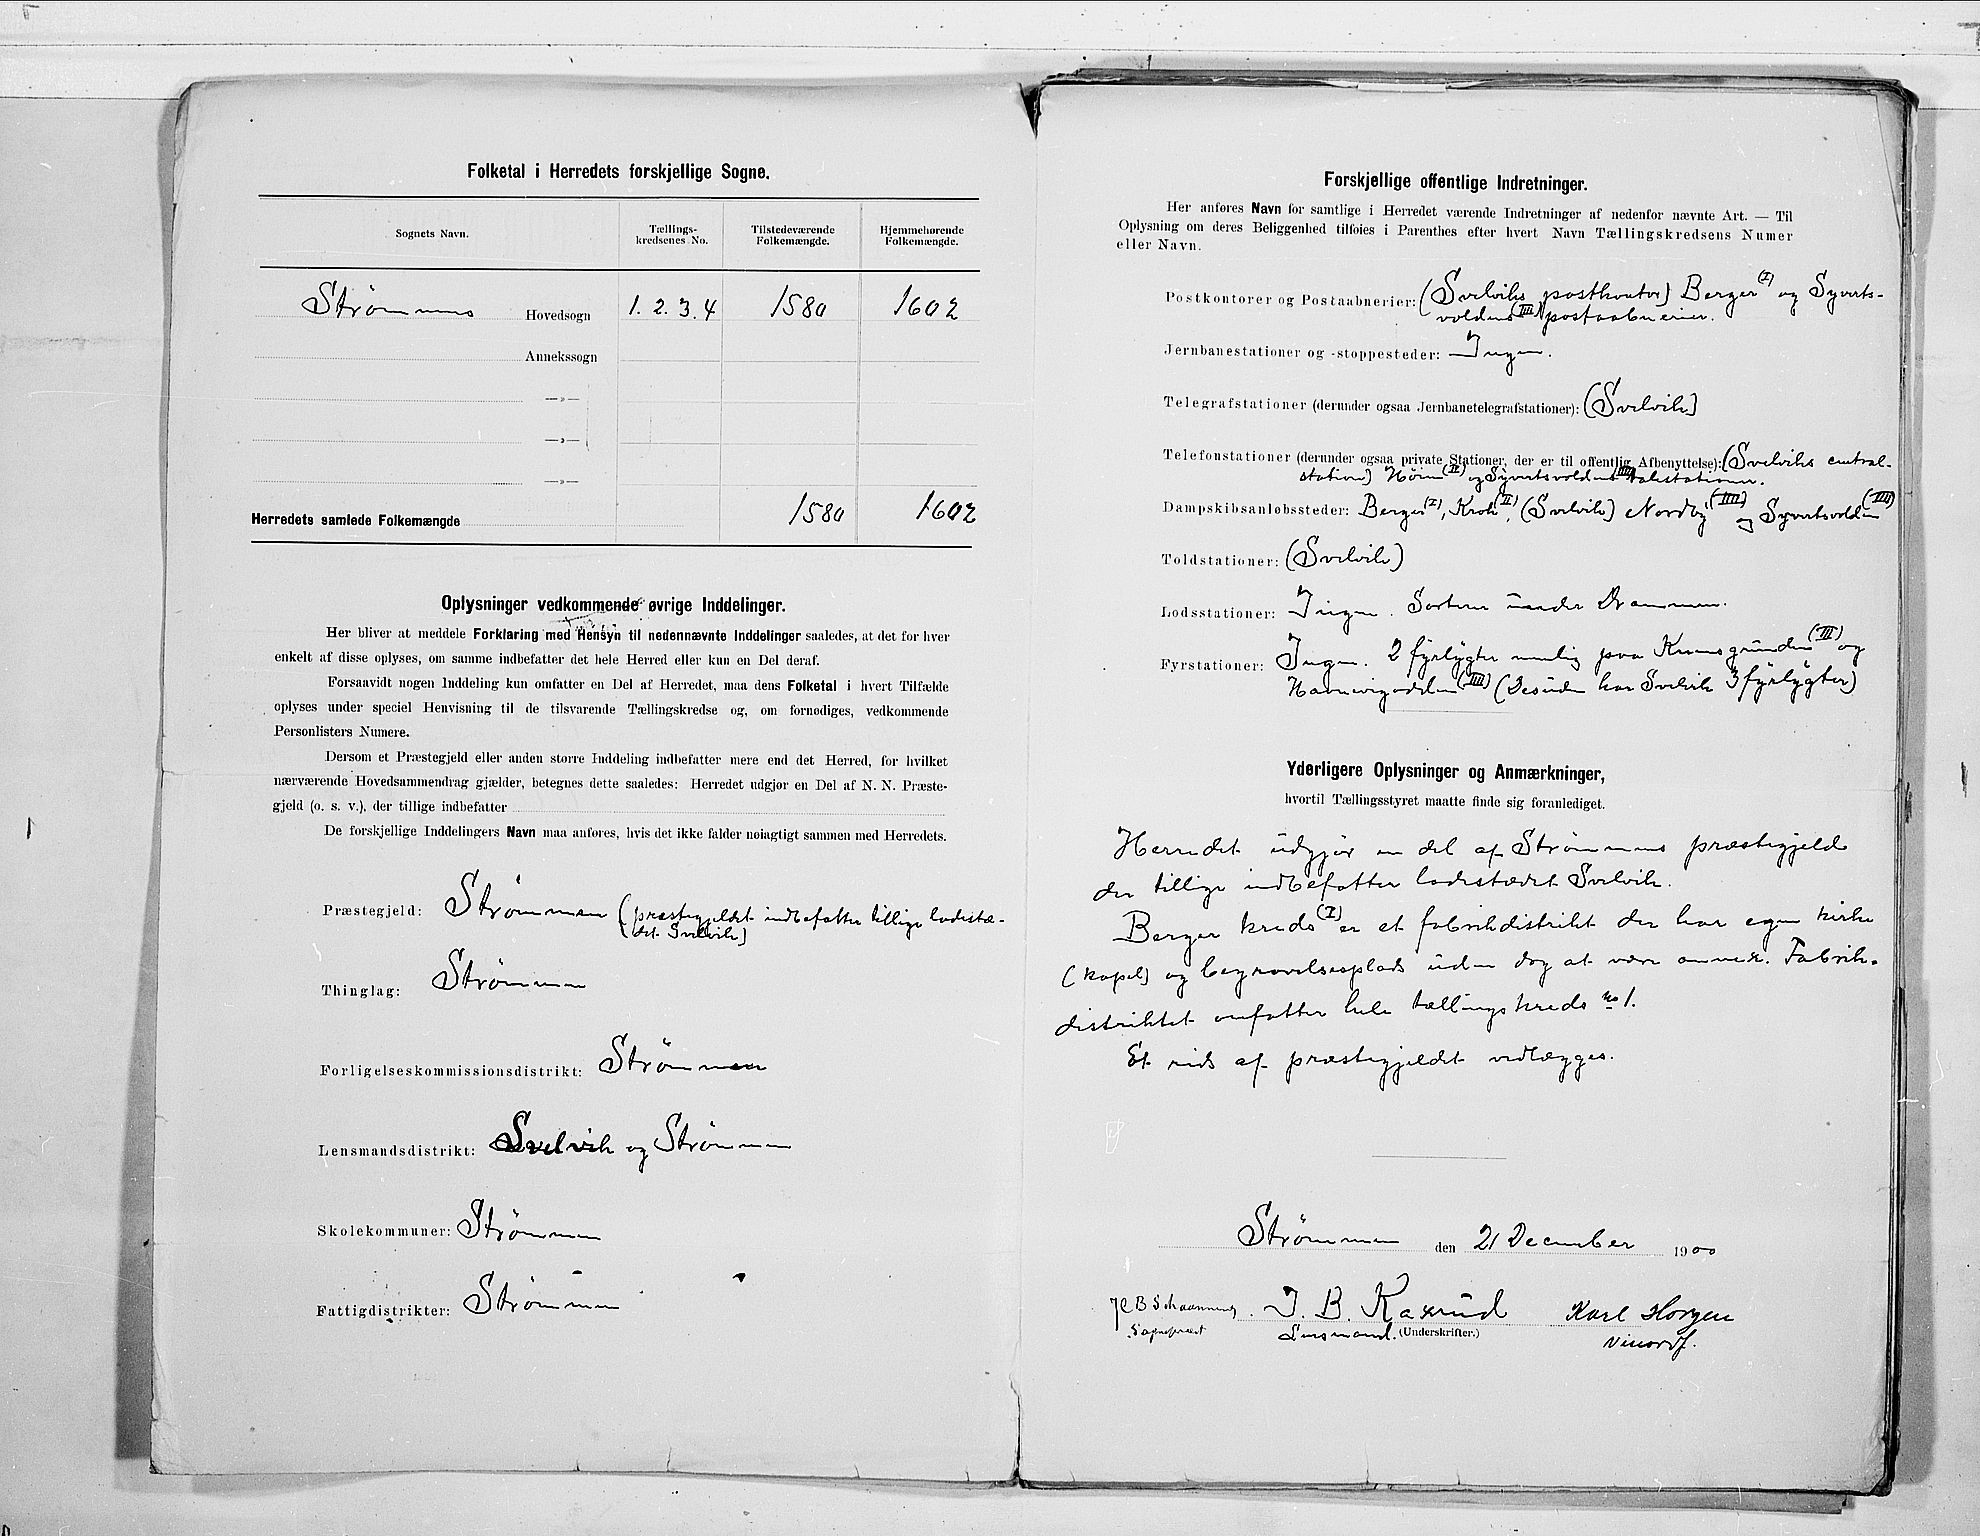 Folketal i Herredets forskjellige Sogne.
Sognets Navn.
Tællings-
kredsenes No.
Tilstedeværende
Folkemængde.
Hjemmehørende
Folkemængde.
Strømmens Hovedsogn 1. 2. 3. 4 1580 1602
Annekssogn
—»—
—»—
—»—
Herredets samlede Folkemængde 1580 1602
Oplysninger vedkommende øvrige Inddelinger.
Her bliver at meddele Forklaring med Hensyn til nedennævnte Inddelinger saaledes, at det for hver
enkelt af disse oplyses, om samme indbefatter det hele Herred eller kun en Del deraf.
Forsaavidt nogen Inddeling kun omfatter en Del af Herredet, maa dens Folketal i hvert Tilfælde
oplyses under speciel Henvisning til de tilsvarende Tællingskredse og, om fornødiges, vedkommende
Personlisters Numere.
Dersom et Præstegjeld eller anden større Inddeling indbefatter mere end det Herred, for hvilket
nærværende Hovedsammendrag gjælder, betegnes dette saaledes: Herredet udgjør en Del af N. N. Præste-
gjeld (o. s. v.), der tillige indbefatter
De forskjellige Inddelingers Navn maa anføres, hvis det ikke falder nøiagtigt sammen med Herredets.
Præstegjeld: Strømmen (præstegjeldet indbefatter tillige ladestæ-
det Svelvik)
Thinglag: Strømmen
Forligelseskommissionsdistrikt: Strømmen
Lensmandsdistrikt: Svelvik og Strømmen
Skolekommuner: Strømmen
Fattigdistrikter: Strømmen
Forskjellige offentlige Indretninger.
Her anføres Navn for samtlige i Herredet værende Indretninger af nedenfor nævnte Art. — Til
Oplysning om deres Beliggenhed tilføies i Parenthes efter hvert Navn Tællingskredsens Numer
eller Navn.
Postkontorer og Postaabnerier: (Svelviks postkontor) Berger (I) og Syverts-
voldens (IIII) postaabnerier.
Jernbanestationer og -stoppesteder: Ingen.
Telegrafstationer (derunder ogsaa Jernbanetelegrafstationer): (Svelvik)
Telefonstationer (derunder ogsaa private Stationer, der er til offentlig Afbenyttelse): (Svelviks central-
station) (II) og Syvertsvoldens (IIII) talestationer.
Dampskibsanløbssteder: Berger (I), Krok (II), (Svelvik) Nordby (IIII) og Syvertsvolden (IIII)
Toldstationer: (Svelvik)
Lodsstationer: Ingen. Sorterer under Drammen.
Fyrstationer: Ingen. 2 fyrlygter nemlig paa (III) og
(IIII) (Desuden har Svelvik 3 fyrlygter)
Yderligere Oplysninger og Anmærkninger,
hvortil Tællingsstyret maatte finde sig foranlediget.
Herredet udgjør en del af Strømmens præstegjeld
der tillige indbefatter ladestædet Svelvik.
Berger kreds (I) er et fabrikdistrikt der har egen kirke
(kapel) og begravelsesplads uden dog at være annex. Fabrik-
distriktet omfatter hele tællingskreds no 1.
Et rids af præstegjeldet vedlægges.
Strømmen den 21 December 1900
Schaanning J. B. Kaxrud Karl Horgen
Sogneprest Lensmand. (Underskrifter.) viceordf.